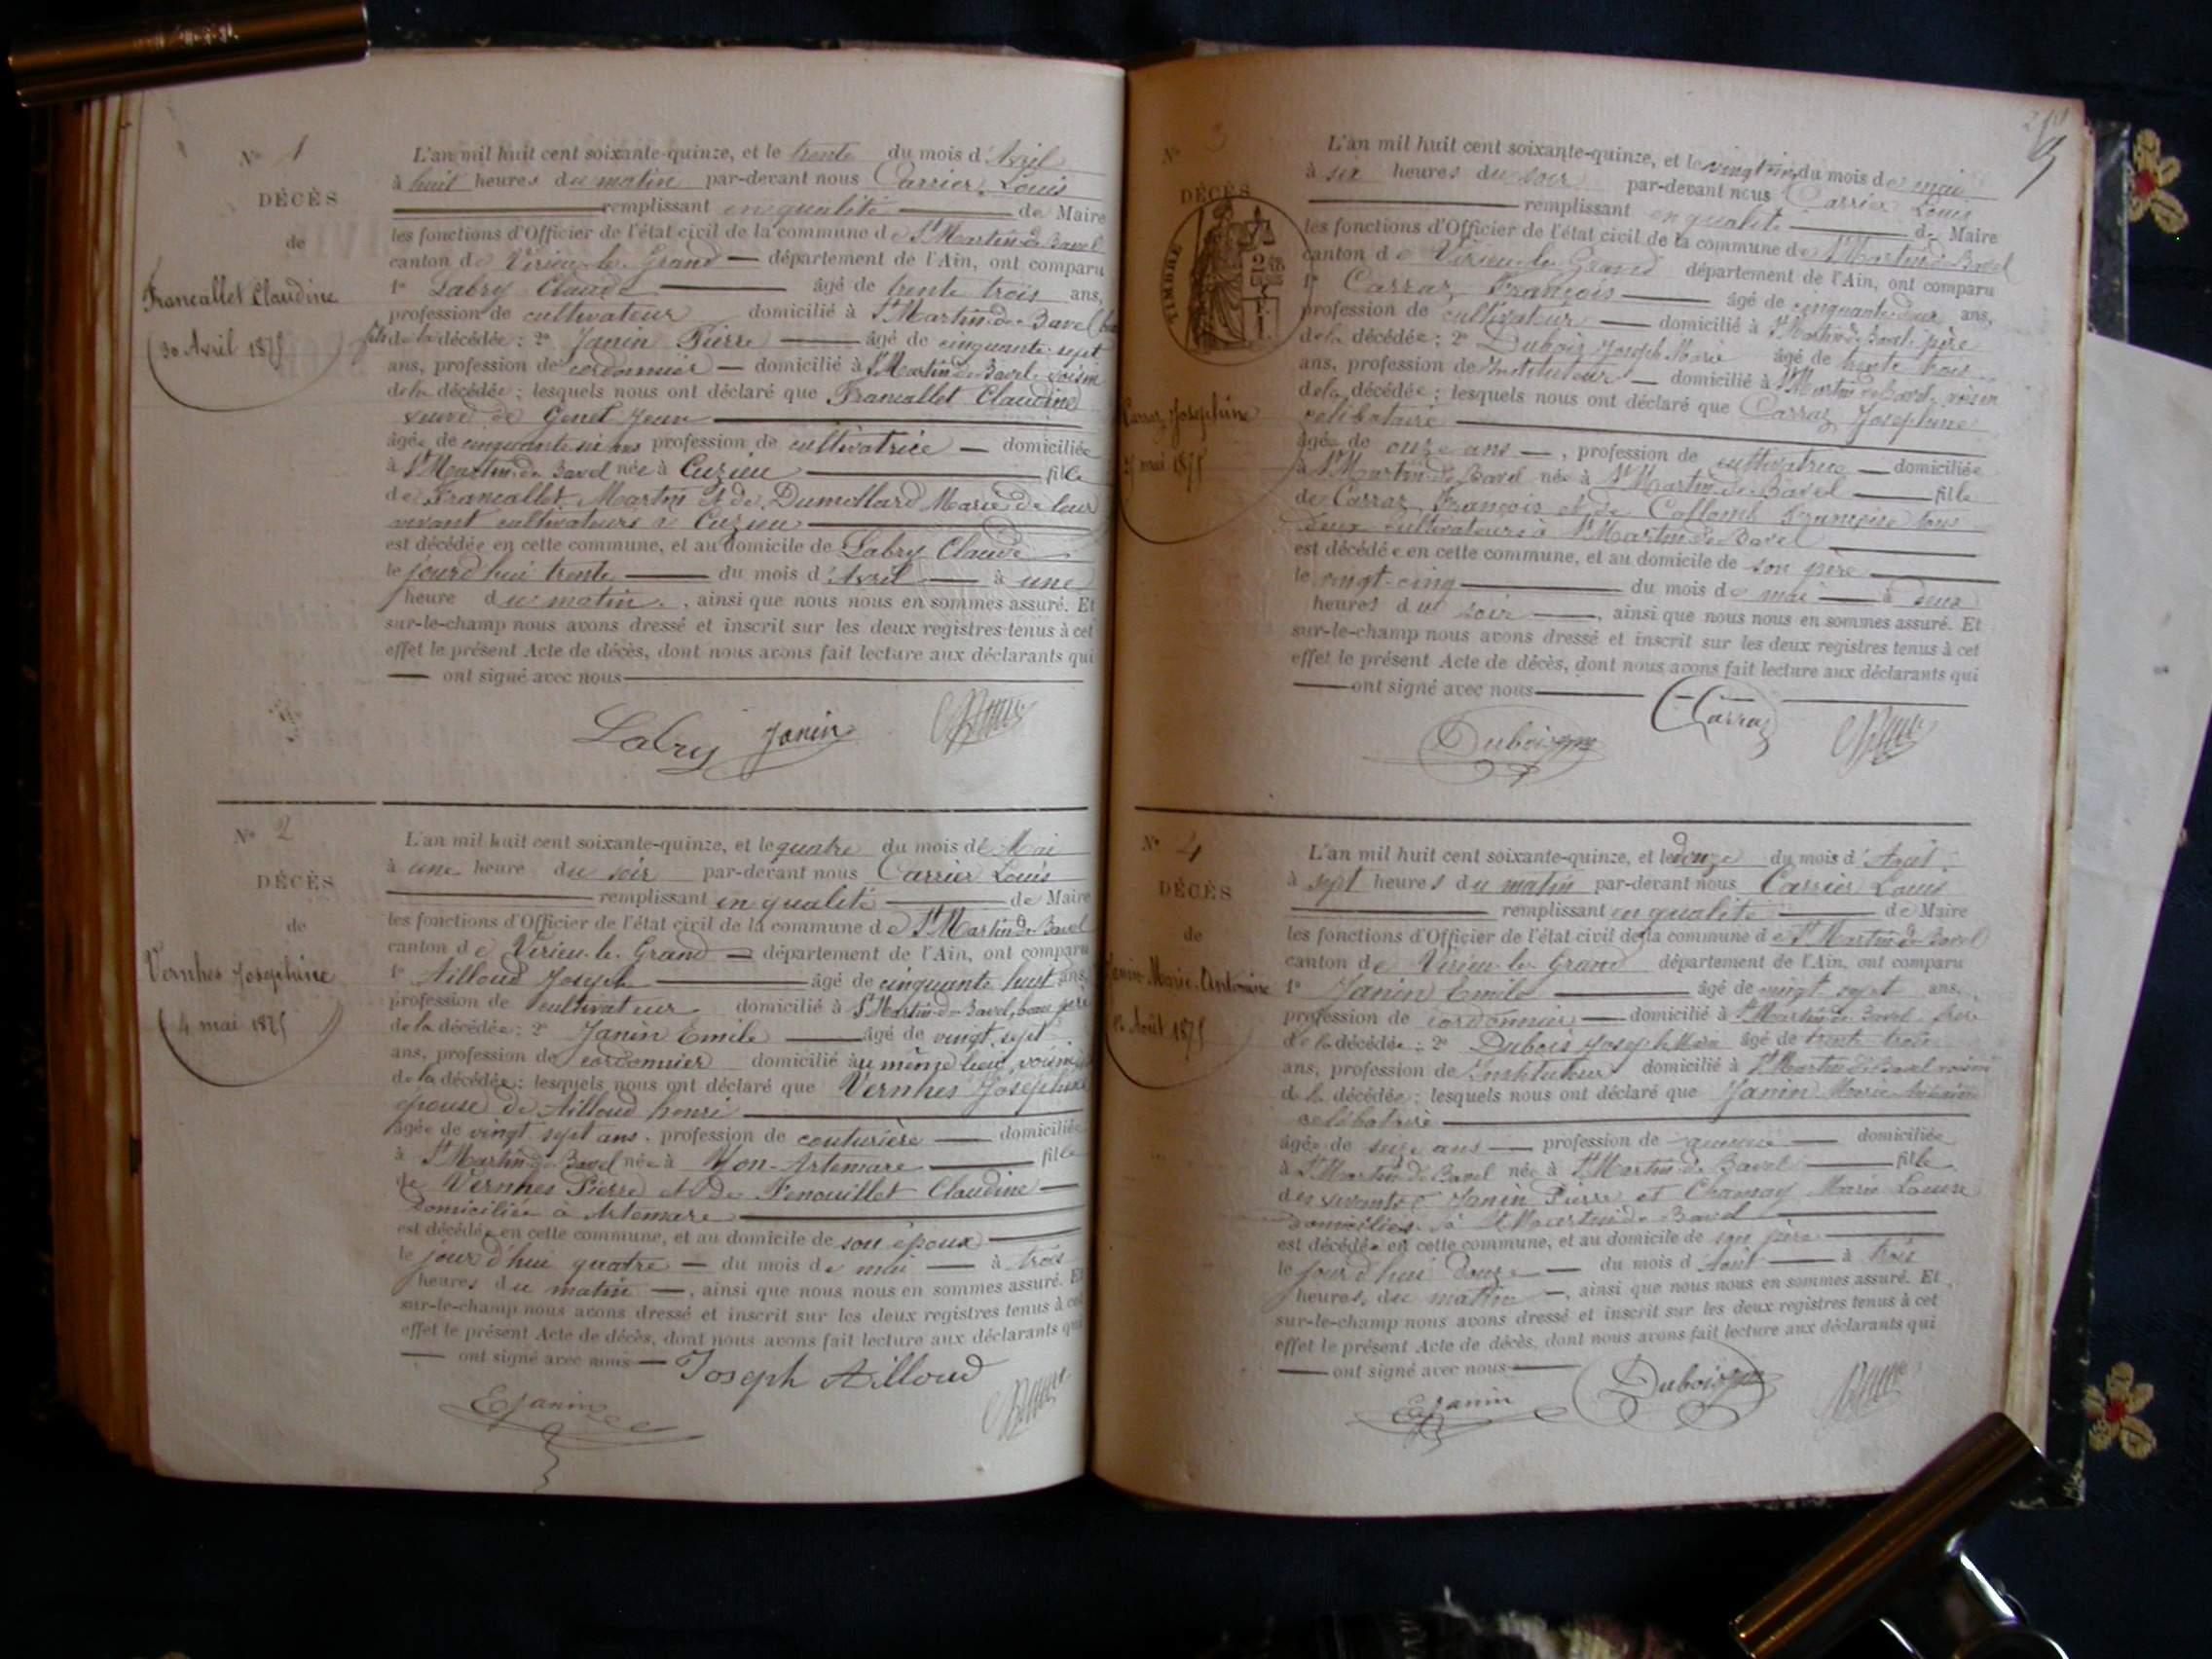 N° 1
DÉCÈS
de
Francallet Claudine
(30 Avril 1875
L'an mil huit cent soixante-quinze, et le trente du mois d'Avril
à huit heures du matin par-devant nous Carrier Louis
remplissant en qualité de Maire
les fonctions d'Officier de l'état civil de la commune de St Martin de Bavel
canton de Virieu-le-Grand département de l'Ain, ont comparu
1° Labry Claude âgé de trente trois ans,
profession de cultivateur domicilié à St Martin de Bavel
de la décédée; 2° Janin Pierre âgé de cinquante-sept
ans, profession de cordonnier domicilié à St Martin de Bavel voisin
de la décédée; lesquels nous ont déclaré que Francallet Claudine
veuve de Genet Jean
âgée de cinquante ans profession de cultivatrice domiciliée
à St Martin de Bavel née à Cuzieu fille
de Francallet Martin et de Dumollard Marie de leur
vivant cultivateurs à Cuzieu
est décédée en cette commune, et au domicile de Labry Claude
le jourd'hui trente du mois d'Avril à une
heure du matin, ainsi que nous nous en sommes assuré. Et
sur-le-champ nous avons dressé et inscrit sur les deux registres tenus à cet
effet le présent Acte de décès, dont nous avons fait lecture aux déclarants qui
ont signé avec nous
Labry Janin
N° 2
DÉCÈS
de
Vernhes Josephine
(4 mai 1875)
L'an mil huit cent soixante-quinze, et le quatre du mois de Mai
à une heure du soir par-devant nous Carrier Louis
remplissant en qualité de Maire
les fonctions d'Officier de l'état civil de la commune de St Martin de Bavel
canton de Virieu-le-Grand département de l'Ain, ont comparu
1° Ailloud Joseph âgé de cinquante huit ans,
profession de cultivateur domicilié à St Martin de Bavel, beau père
de la décédée; 2° Janin Emile âgé de vingt sept
ans, profession de cordonnier domicilié au même lieu, voisin
de la décédée; lesquels nous ont déclaré que Vernhes Josephine
épouse de Ailloud henri
âgée de vingt sept ans, profession de couturière domiciliée
à St Martin de Bavel née à Yon-Artemare fille
de Vernhes Pierre et de Fenouillet Claudine
domiciliée à Artemare
est décédée en cette commune, et au domicile de son époux
le jourd'hui quatre du mois de mai à trois
heures du matin, ainsi que nous nous en sommes assuré. Et
sur-le-champ nous avons dressé et inscrit sur les deux registres tenus à cet
effet le présent Acte de décès, dont nous avons fait lecture aux déclarants qui
ont signé avec nous Joseph Ailloud
E Janin
N° 3
DÉCÈS
TIMBRE
Carraz Josephine
mai 1875
L'an mil huit cent soixante-quinze, et le du mois de mai
à six heures du soir par-devant nous Carrier Louis
remplissant en qualité de Maire
les fonctions d'Officier de l'état civil de la commune de St Martin de Bavel
canton de Virieu-le-Grand département de l'Ain, ont comparu
1° Carraz François âgé de cinquante deux ans,
profession de cultivateur domicilié à St Martin de Bavel père
de la décédée; 2° Dubois Joseph Marie âgé de trente trois
ans, profession de Instituteur domicilié à St Martin de Bavel, voisin
de la décédée; lesquels nous ont déclaré que Carraz Josephine
celibataire
âgée de onze ans, profession de cultivatrice domiciliée
à St Martin de Bavel née à St Martin de Bavel fille
de Carraz François et de Collomb Françoise tous
deux cultivateurs à St Martin de Bavel
est décédée en cette commune, et au domicile de son père
le vingt-cinq du mois de mai à deux
heures du soir, ainsi que nous nous en sommes assuré. Et
sur-le-champ nous avons dressé et inscrit sur les deux registres tenus à cet
effet le présent Acte de décès, dont nous avons fait lecture aux déclarants qui
ont signé avec nous Carraz
Dubois
N° 4
DÉCÈS
de
Janin Marie-Antoinine
Août 1875
L'an mil huit cent soixante-quinze, et le douze du mois d'Août
à sept heures du matin par-devant nous Carrier Louis
remplissant en qualité de Maire
les fonctions d'Officier de l'état civil de la commune de St Martin de Bavel
canton de Virieu-le-Grand département de l'Ain, ont comparu
1° Janin Emile âgé de vingt sept ans,
profession de cordonnier domicilié à St Martin de Bavel frère
de la décédée; 2° Dubois Joseph Marie âgé de trente trois
ans, profession de Instituteur domicilié à St Martin de Bavel voisin
de la décédée; lesquels nous ont déclaré que Janin Marie
celibataire
âgée de seize ans profession de domiciliée
à St Martin de Bavel née à St Martin de Bavel fille
des vivants Janin Pierre et Marie Louise
domiciliés à St Martin de Bavel
est décédée en cette commune, et au domicile de son père
le jourd'hui douze du mois d'Août à trois
heures du matin, ainsi que nous nous en sommes assuré. Et
sur-le-champ nous avons dressé et inscrit sur les deux registres tenus à cet
effet le présent Acte de décès, dont nous avons fait lecture aux déclarants qui
ont signé avec nous
E Janin Dubois